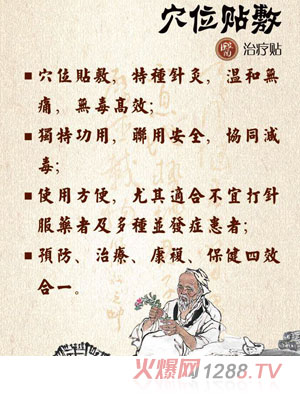 穴位贴敷
治疗贴
穴位貼敷，特種針灸，溫和無
痛，無毒高效；
獨特功用，聯用安全，協同減
毒；
使用方便，尤其適合不宜打針
服藥者及多種並發症患者；
預防、治療、康複、保健四效
合一。
火爆网1288.TV